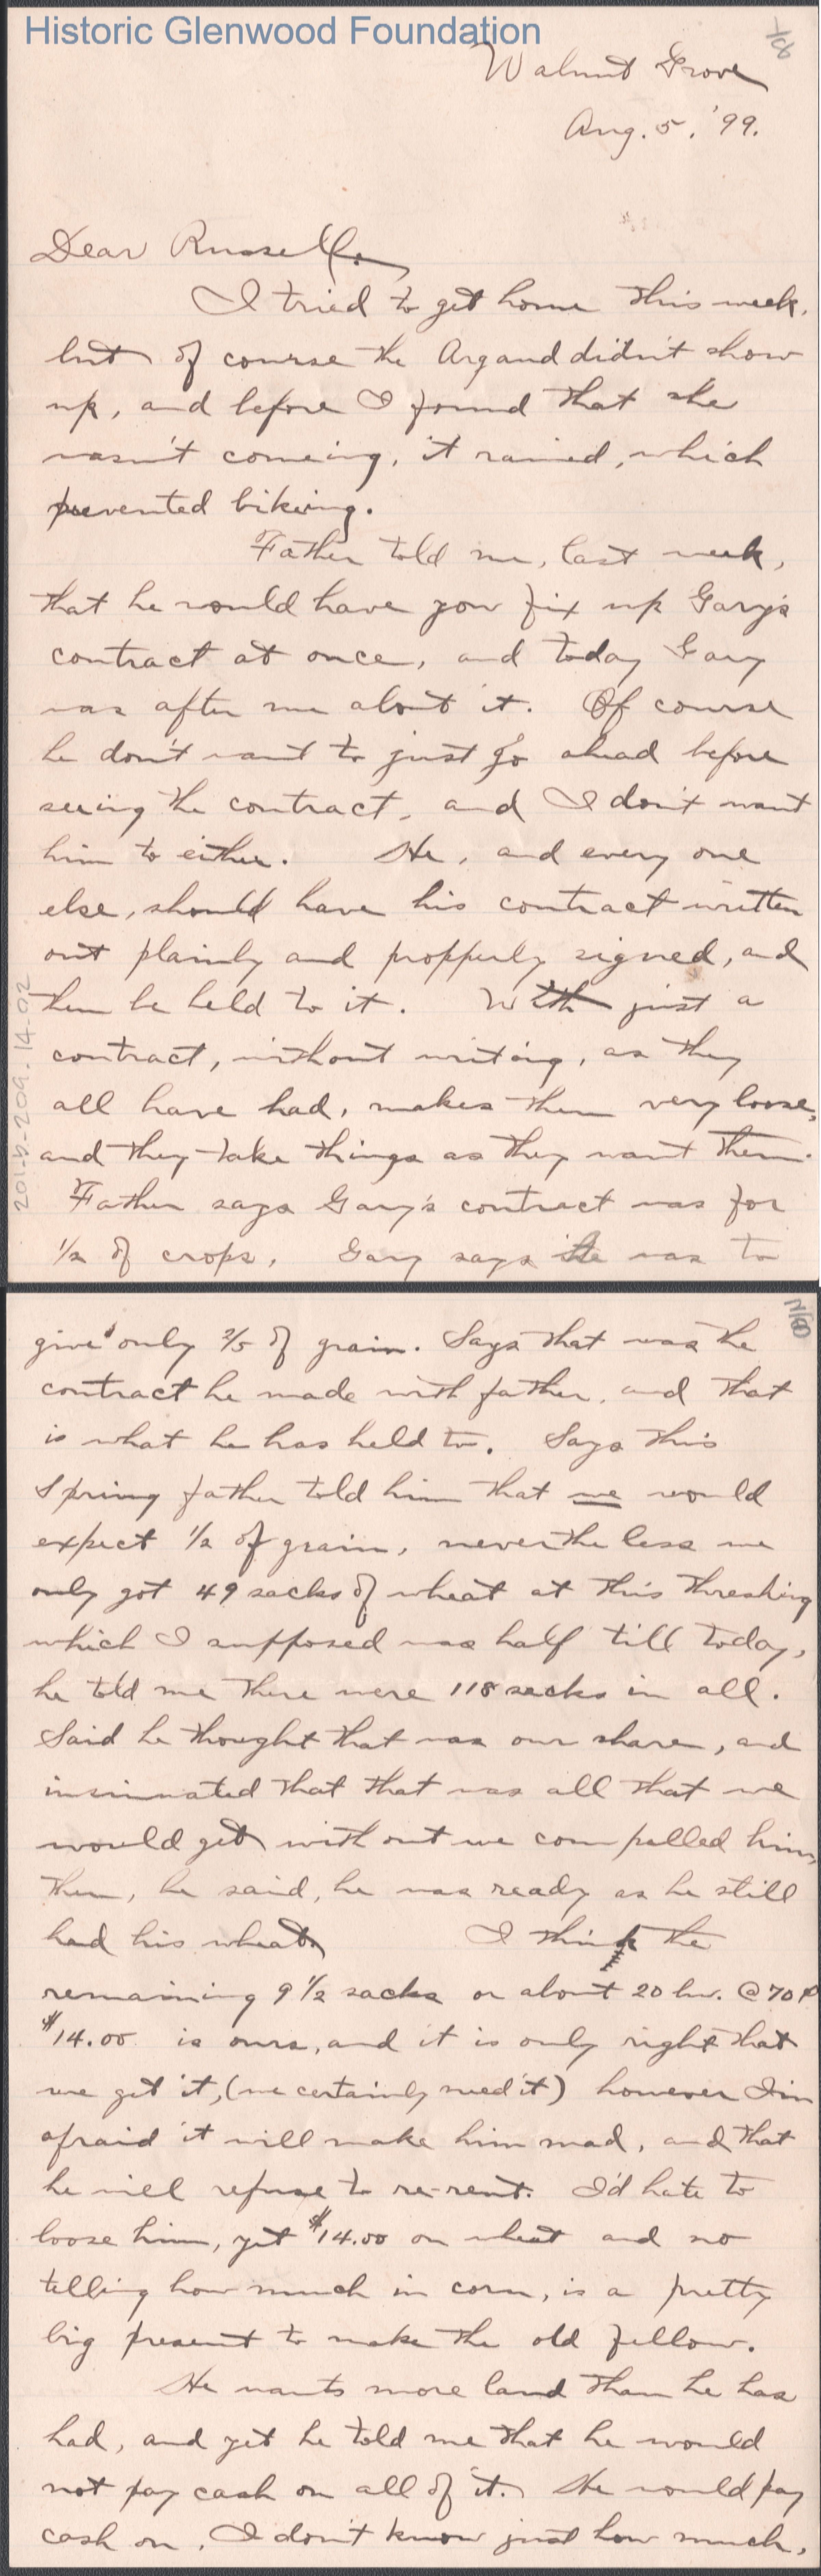 Historic Glenwood Foundation
Walnut Grove
Aug. 5, '99.
Dear Russell,
I tried to get home this week,
but of course the Argand didn't show
up, and before I found that she
wasn't comeing, it rained, which
prevented bikeing.
Father told me, last week,
that he would have you fix up Gary's
contract at once, and today Gary
was after me about it. Of course
he don't want to just go ahead before
seeing the contract, and I don't want
him to either. He, and every one
else, should have his contract written
out plainly and propperly signed, and
then be held to it. With just a
contract, without writing, as they
all have had, makes them very loose,
and they take things as they want them.
Father says Gary's contract was for
1/2 of crops, Gary says he was to
2015-209.14-02
give only 2/5 of grain. Says that was the
contract he made with father, and that
is what he has held to. Says this
Spring father told him that we would
expect 1/2 of grain, nevertheless we
only got 49 sacks of wheat at this threshing
which I supposed was half till today,
he told me there were 118 sacks in all.
Said he thought that was our share, and
insinuated that that was all that we
would get with out we compelled him,
then, he said, he was ready as he still
had his wheat. I think the
remaining 9 1/2 sacks or about 20 bu. @ 70¢
$14.00 is ours, and it is only right that
we get it, (we certainly need it) however I'm
afraid it will make him mad, and that
he will refuse to re-rent. I'd hate to
loose him, yet $14.00 on wheat and no
telling how much in corn, is a pretty
big present to make the old fellow.
He wants more land than he has
had, and yet he told me that he would
not pay cash on all of it. He would pay
cash on, I don't know just how much,